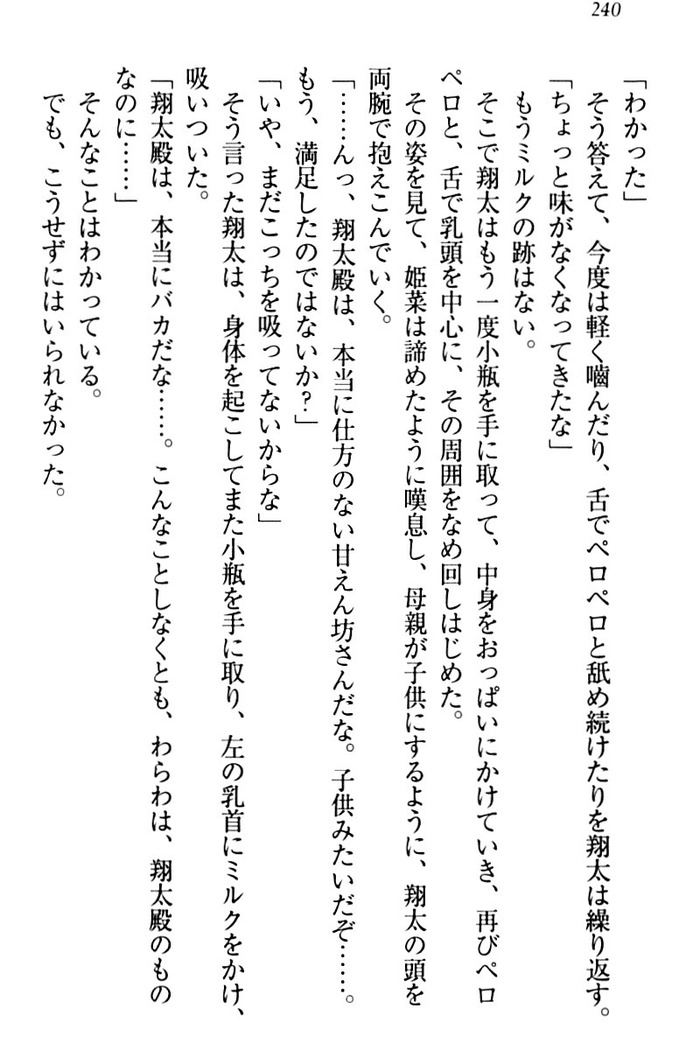 240
「わかった」
そう答えて、今度は軽く嚙んだり、舌でペロペロと舐め続けたりを翔太は繰り返す。
「ちょっと味がなくなってきたな」
もうミルクの跡はない。
そこで翔太はもう一度小瓶を手に取って、中身をおっぱいにかけていき、再びペロ
ペロと、舌で乳頭を中心に、その周囲をなめ回しはじめた。
その姿を見て、姫菜は諦めたように嘆息し、母親が子供にするように、翔太の頭を
両腕で抱えこんでいく。
「……んっ、翔太殿は、本当に仕方のない甘えん坊さんだな。子供みたいだぞ……。
もう、満足したのではないか?」
「いや、まだこっちを吸ってないからな」
そう言った翔太は、身体を起こしてまた小瓶を手に取り、左の乳首にミルクをかけ、
吸いついた。
「翔太殿は、本当にバカだな……。こんなことしなくとも、わらわは、翔太殿のもの
なのに……」
そんなことはわかっている。
でも、こうせずにはいられなかった。